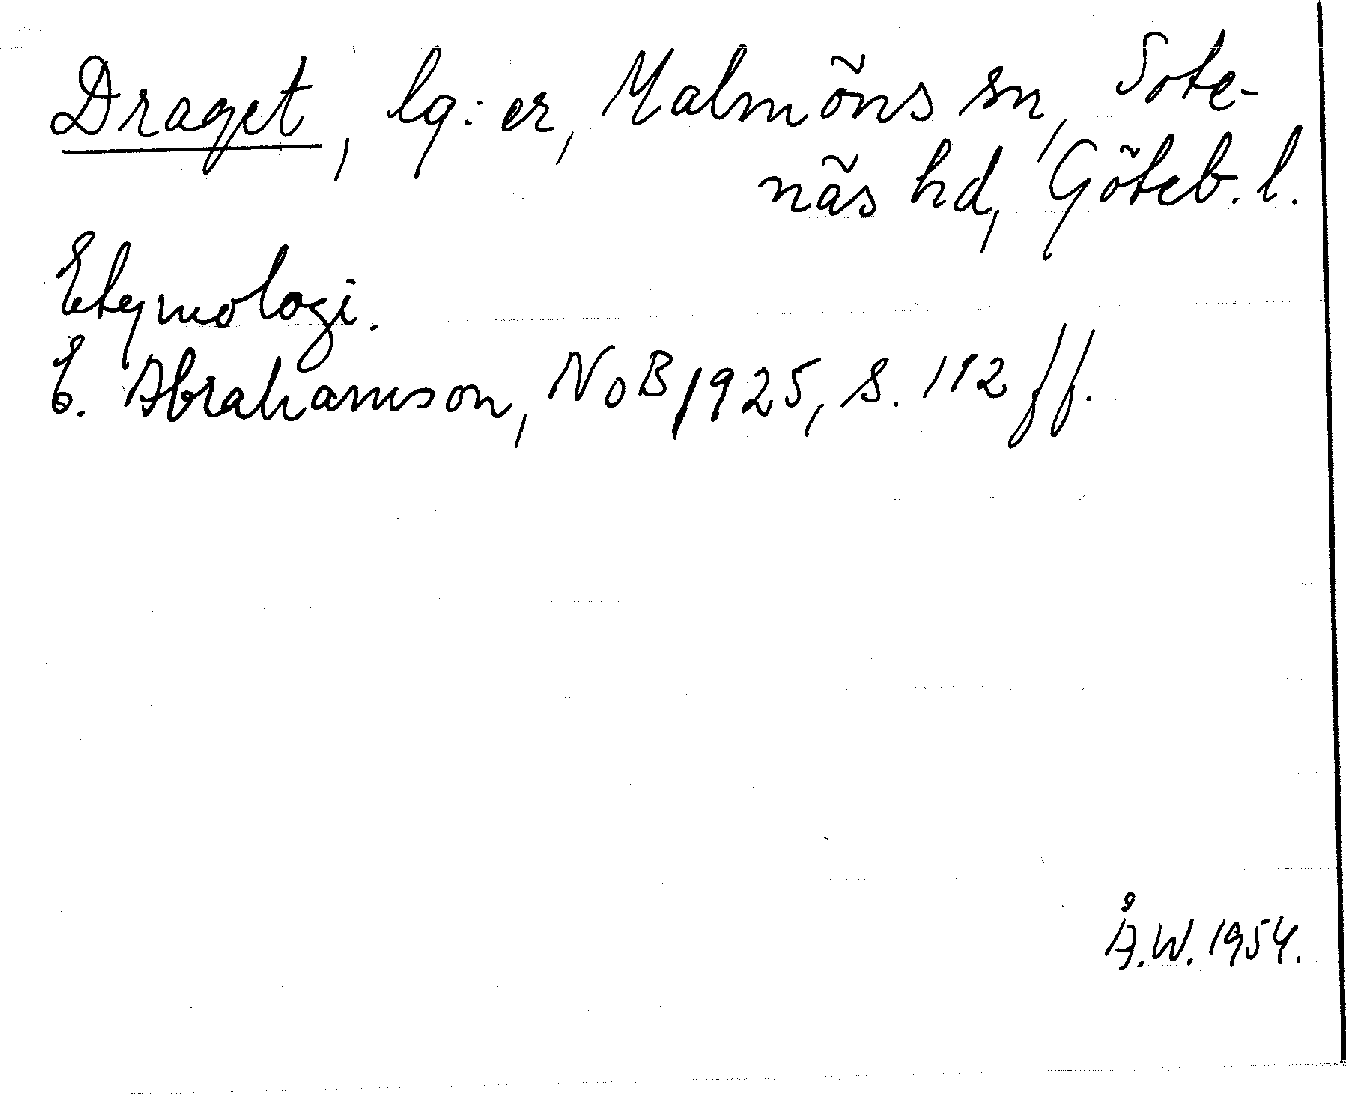 Draget, lq: er, Malmöns sn, Sote-
näs hd, Göteb. l.
Etymologi.
E. Abrahamson, NoB 1925, s. 112 ff.
Å.W. 1954.